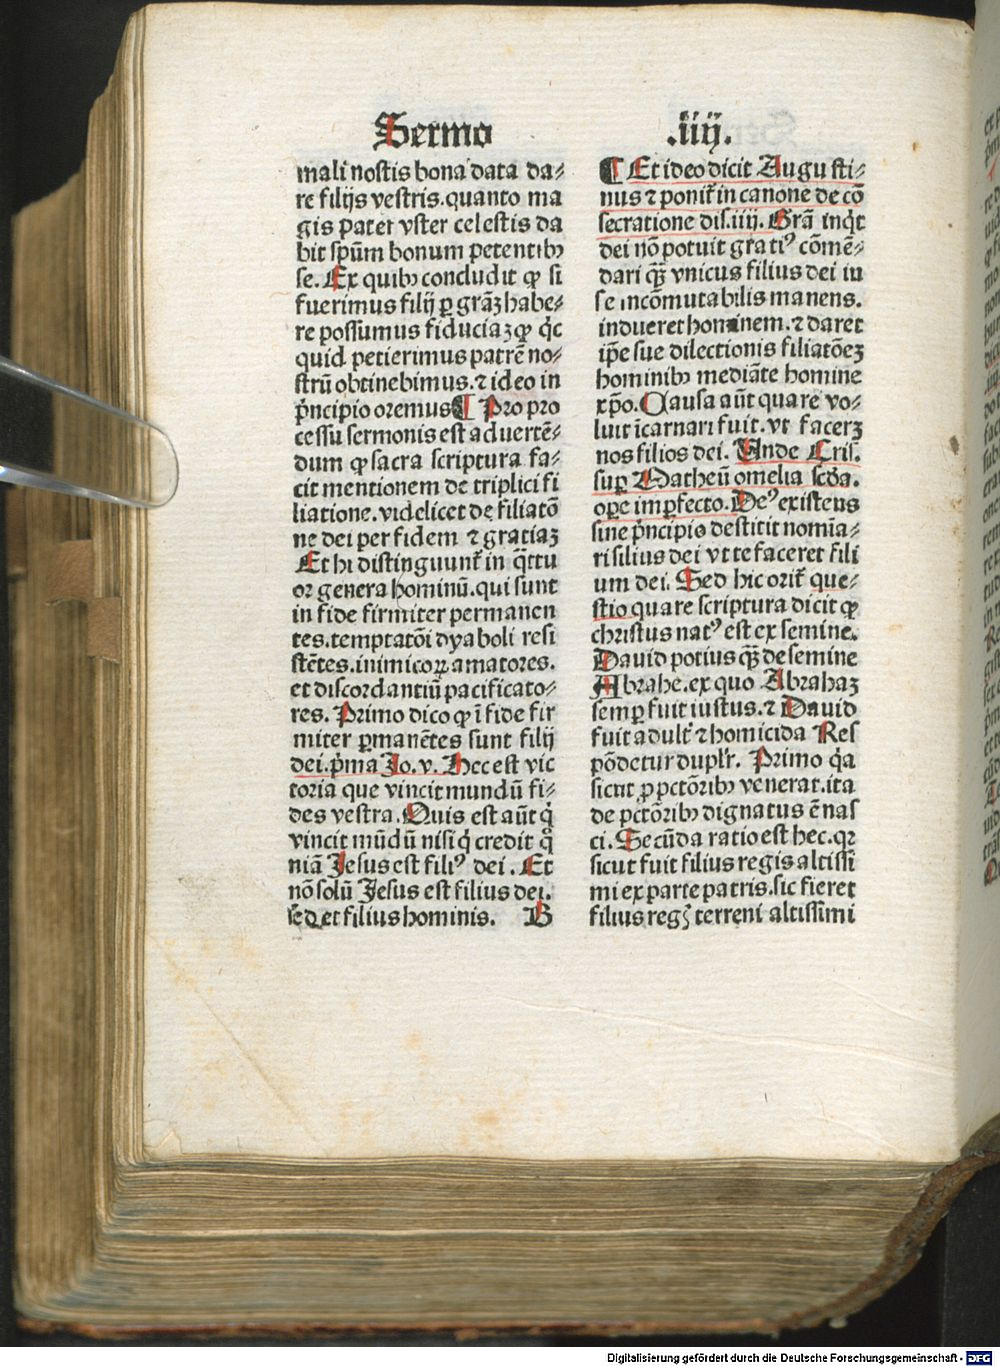 Sermo .iiij.
mali nostis bona data da⸗
re filijs vestris.quanto ma
gis pater vster celestis da
bit spūm bonum petentibꝰ
se. Ex quibꝰ concludit ꝙ si
fuerimus filij ꝑ grāꝫ habe⸗
re possumus fiduciaꝫ ꝙ qͥc
quid petierimus patrē no⸗
strū obtinebimus.⁊ ideo in
pͥncipio oremus ¶ Pro pro
cessu sermonis est aduertē⸗
dum ꝙ sacra scriptura fa⸗
cit mentionem de triplici fi
liatione.videlicet de filiatō
ne dei per fidem ⁊ gratiaꝫ
Et hi distinguunt᷑ in qᷓttu
or genera hominū.qui sunt
in fide firmiter permanen
tes.temptatōi dyaboli resi
stētes.inimicoꝝ amatores.
et discordantiū pacificato⸗
res. Primo dico ꝙ ī fide fir
miter ꝑmanētes sunt filij
dei.pͥma Jo.v. Hec est vic
toria que vincit mundū fi⸗
des vestra. Quis est aūt qͥ
vincit mūdū nisi qͥ credit qm̄
niā Jesus est filiꝰ dei. Et
nō solū Jesus est filius dei.
sed et filius hominis. B
¶ Et ideo dicit Augusti⸗
nus ⁊ ponit᷑ in canone de cō
secratione dis.iiij. Grā inqͥt
dei nō potuit gratiꝰ cōmē⸗
dari qꝙ̄ vnicus filius dei in
se incōmutabilis manens.
indueret hominem.⁊ daret
ip̄e sue dilectionis filiatōeꝫ
hominibꝰ mediāte homine
xp̄o. Causa aūt quare vo⸗
luit īcarnari fuit.vt faceꝝ
nos filios dei. Unde Cris.
suꝑ Matheū omelia scd̄a.
oꝑe imꝑfecto. Deꝰ existens
sine pͥncipio destitit nomīa⸗
ri filius dei vt te faceret fili
um dei. Sed hic orit᷑ que⸗
stio quare scriptura dicit ꝙ
christus natꝰ est ex semine.
Dauid potius qꝙ̄ de semine
Abrahe.ex quo Abrahaꝫ
semꝑ fuit iustus.⁊ Dauid
fuit adult᷑ ⁊ homicida Res
pōdetur duplr̄. Primo qͥa
sicut ꝓ pctōribꝰ venerat.ita
de pctōribꝰ dignatus ē nas
ci. Secūda ratio est hec.qꝛ
sicut fuit filius regis altissi
mi ex parte patris.sic fieret
filius regꝭ terreni altissimi
Digitalisierung gefördert durch die Deutsche Forschungsgemeinschaft - DFG